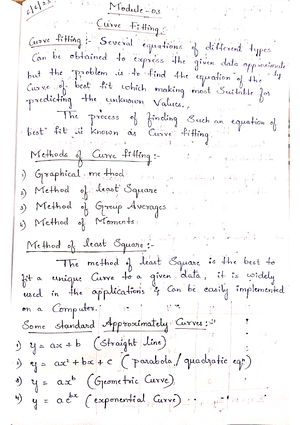 Module-03
Curve Fitting
Curve fitting :- Several equations of different types
Can be obtained to express the given data approximately
but the problem is to find the equation of the
Curve of best fit which making most Suitable for
predicting the unknown Values.
The process of finding Such an equation of
best fit is known as Curve fitting.
Methods of Curve fitting:-
1) Graphical method
2) Method of least Square
3) Method of Group Averages
4) Method of Moments
Method of least Square:-
The method of least Square is the best to
fit a unique Curve to a given data, it is widely
used in the applications & Can be easily implemented
on a Computer.
Some standard Approximately Curves:-
1) y = ax + b (Straight line)
2) y = ax² + bx + c (parabola / quadratic eqn)
3) y = axᵇ (Geometric Curve)
4) y = aeᵇˣ (exponential Curve)